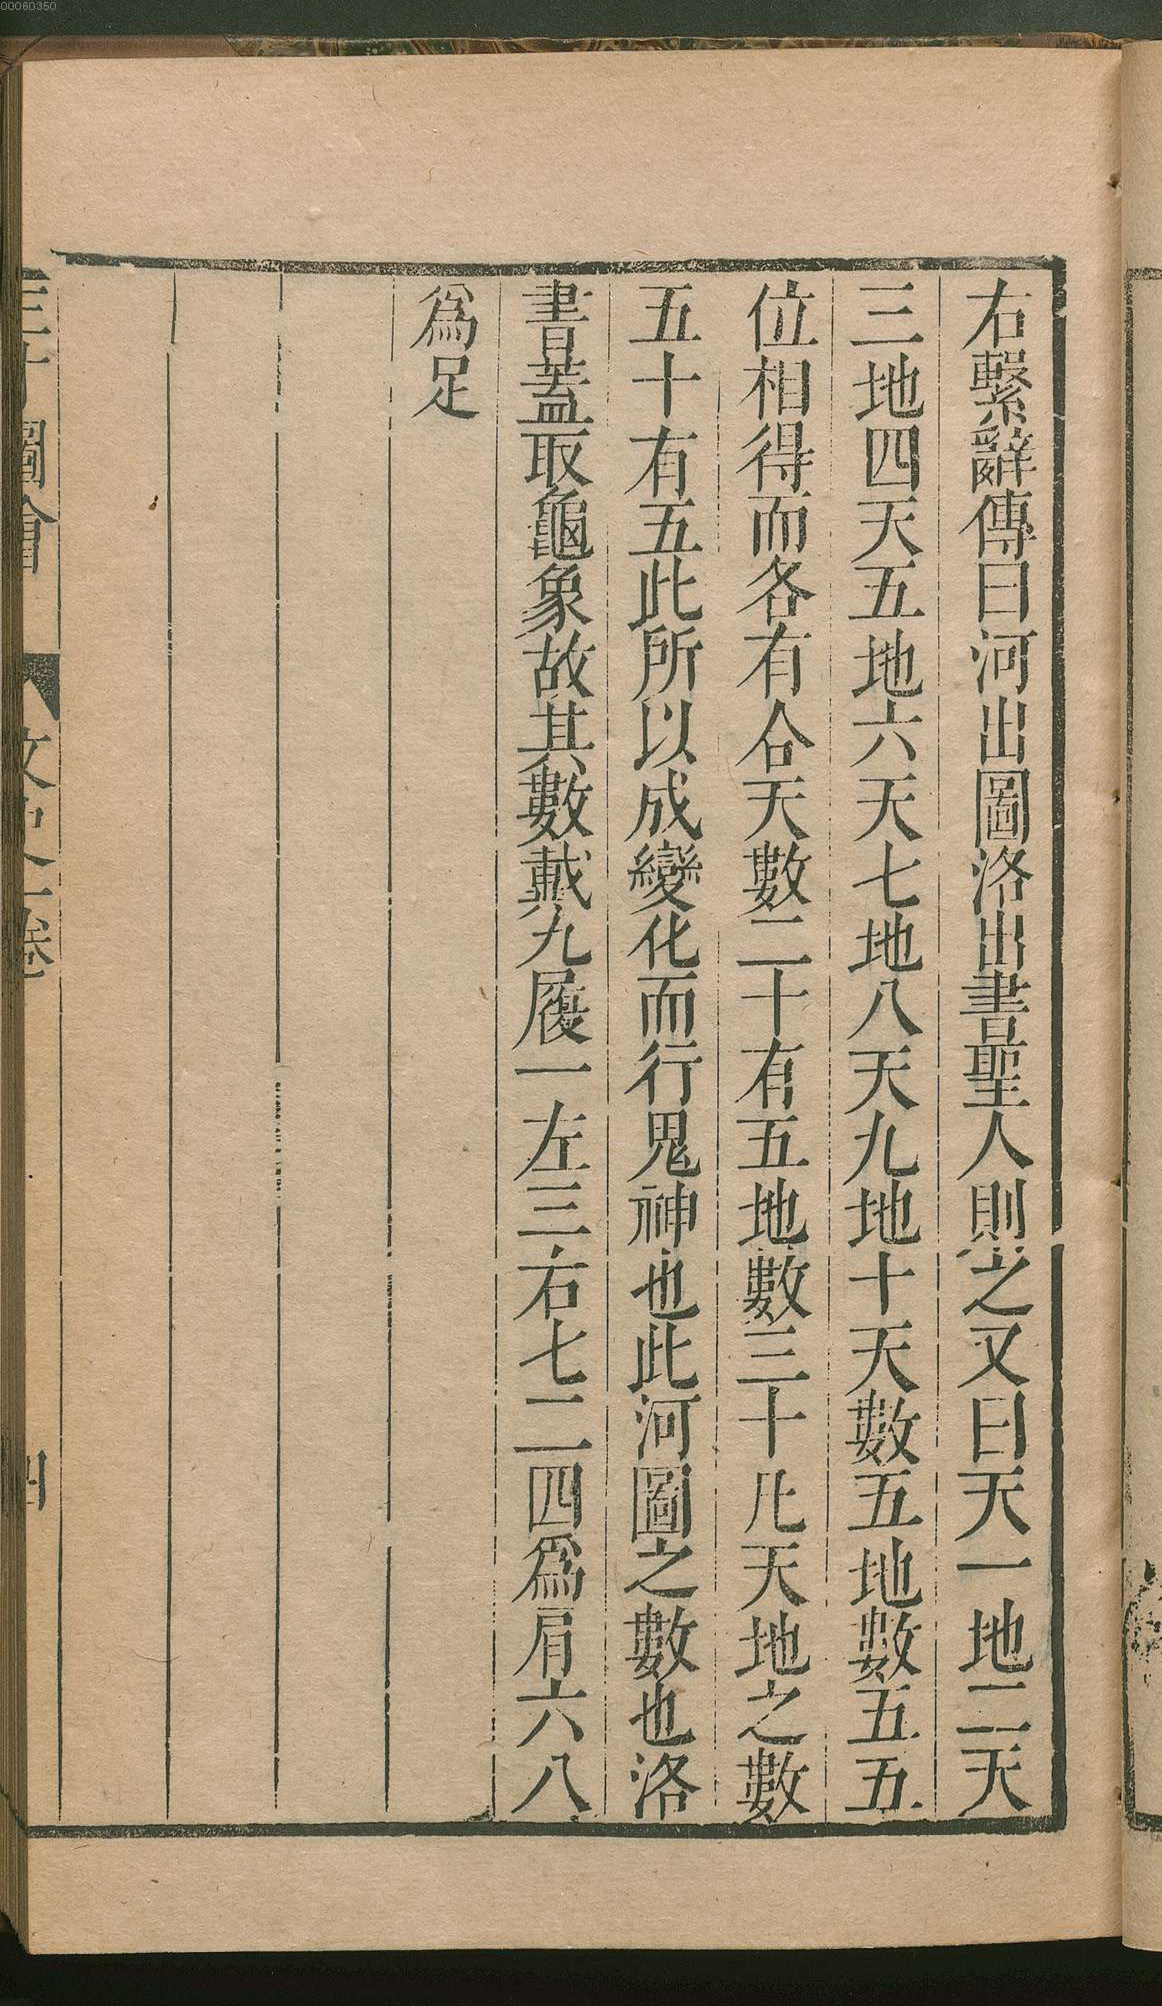 00060350
右繫辭傳曰河出圖洛出書聖人則之又曰天一地二天
三地四天五地六天七地八天九地十天數五地數五五
位相得而各有合天數二十有五地數三十凡天地之數
五十有五此所以成變化而行鬼神也此河圖之數也洛
書蓋取龜象故其數戴九履一左三右七二四爲肩六八
爲足
三才圖會 文史一卷 四